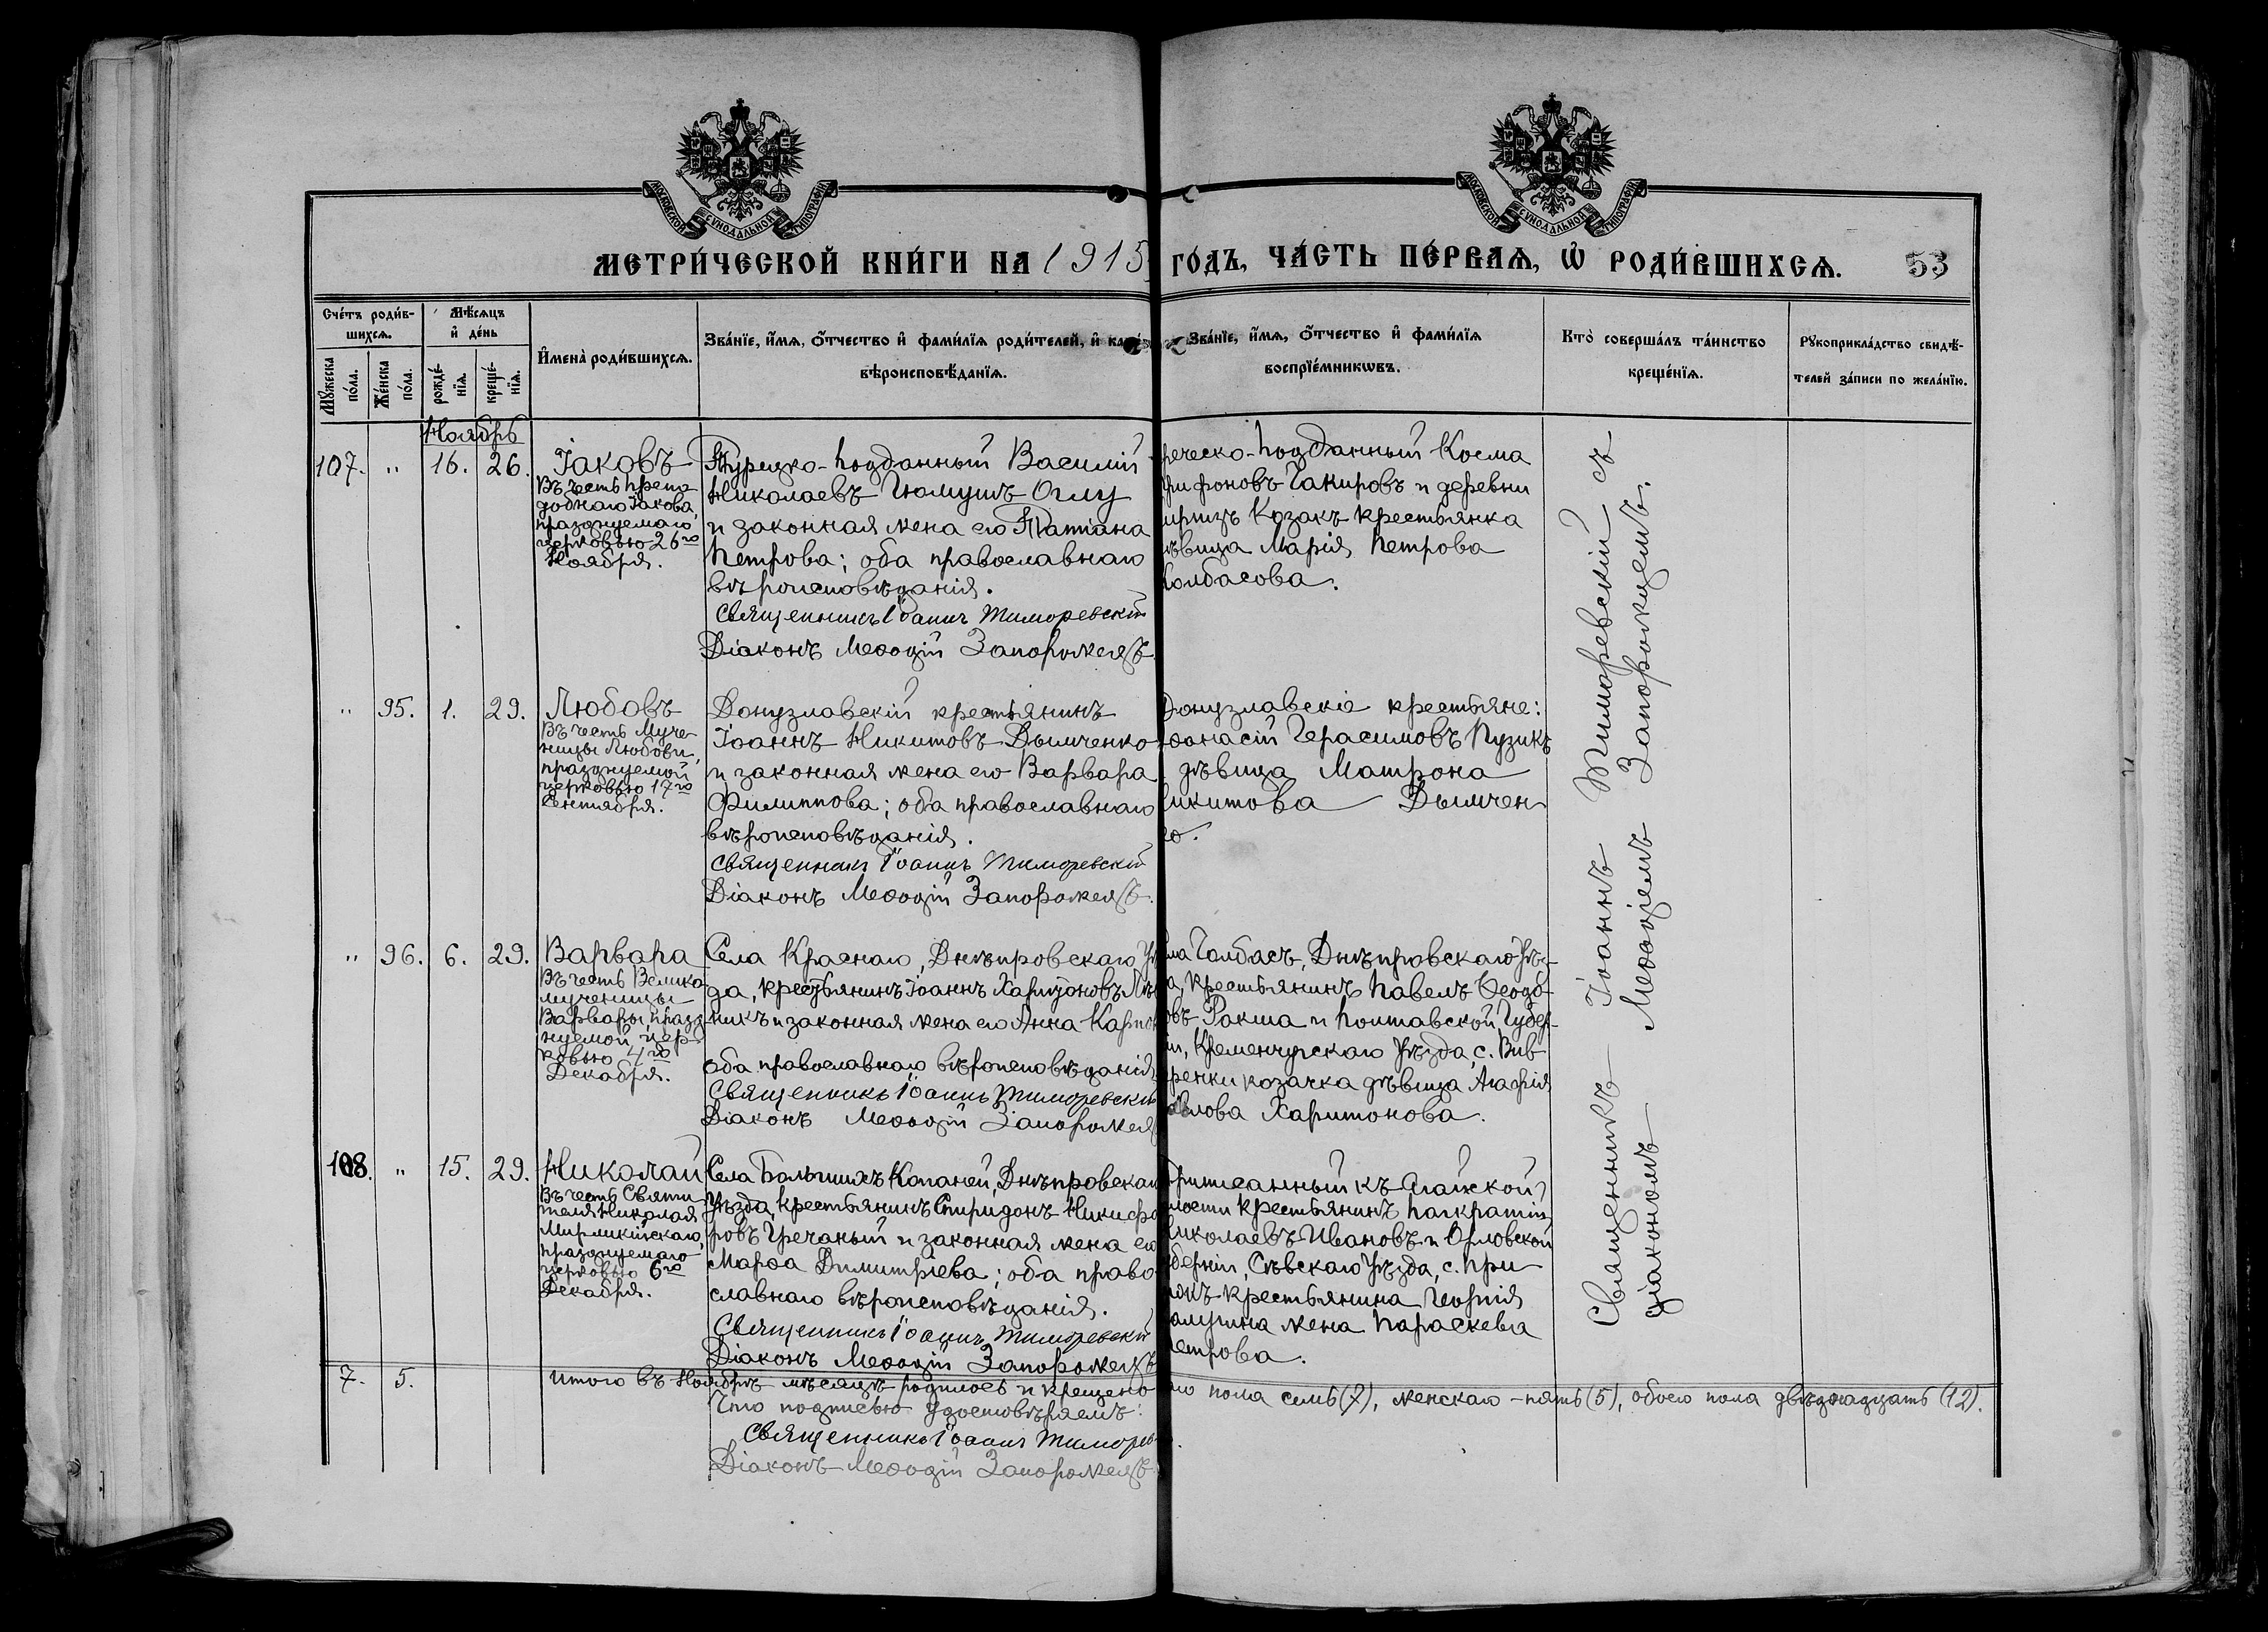 МОСКОВСКОЙ СѴНОДАЛЬНОЙ ТИПОГРАФІИ
МОСКОВСКОЙ СѴНОДАЛЬНОЙ ТИПОГРАФІИ
МЕТРИ́ЧЕСКОЙ КНИ́ГИ НА 1915
ГО́ДЪ, ЧА́СТЬ ПЕ́РВАѦ, Ѡ҆ РОДИ́ВШИХСѦ. 53
Сче́тъ роди́в-
шихсѧ.
Мꙋ́жеска
по́ла.
Же́нска
по́ла.
Мѣ́сѧцъ
и҆ де́нь
рожде́-
нїѧ.
креще́-
нїѧ.
И҆мена̀ роди́вшихсѧ.
Зва́нїе, и҆́мѧ, ѻ҆́тчество и҆ фами́лїѧ роди́телей, и҆
вѣроисповѣ́данїѧ.
Зва́нїе, и҆́мѧ, ѻ҆́тчество и҆ фами́лїѧ
воспрїе́мникѡвъ.
Кто̀ соверша́лъ та́инство
креще́нїѧ.
Рꙋкоприкла́дство свидѣ́-
телей за́писи по жела́нїю.
Ноябрь
107. " 16. 26.
Іаковъ
Въ честь препо-
добнаго Іакова,
празднуемаго
церковью 26го
Ноября.
Турецко-подданный Василій
Николаевъ Гюмушъ Оглу
и законная жена его Татіана
Петрова; оба православнаго
вѣроисповѣданія.
Священникъ Іоаннъ Тиморевскій
Діаконъ Меѳодій Запорожецъ.
реческо-подданный Косма
рифоновъ Чакировъ и деревни
Козакъ крестьянка
ѣвица Марія Петрова
Колбасова.
" 95. 1. 29.
Любовь
Въ честь Муче-
ницы Любови,
празднуемой
церковью 17го
Сентября.
Донузлавскій крестьянинъ
Іоаннъ Никитовъ Дымченко
и законная жена его Варвара
Филиппова; оба православнаго
вѣроисповѣданія.
Священникъ Іоаннъ Тиморевскій
Діаконъ Меѳодій Запорожецъ.
Донузлавскіе крестьяне:
ѳанасій Герасимовъ Пузикъ
дѣвица Матрона
икитова Дымчен-
ко.
" 96. 6. 29.
Варвара
Въ честь Велико-
мученицы
Варвары, празд-
нуемой цер-
ковью 4го
Декабря.
Села Краснаго, Днѣпровскаго Уѣ
да, крестьянинъ Іоаннъ Харитоновъ
никъ и законная жена его Анна
оба православнаго вѣроисповѣданія.
Священникъ Іоаннъ Тиморевскій
Діаконъ Меѳодій Запорожец
ла Чалбасъ, Днѣпровскаго Уѣз-
а, крестьянинъ Павелъ Ѳеодо-
овъ Ракша и Полтавской Губер-
іи, Кременчугскаго Уѣзда, с.
козачка дѣвица Агафія
авлова Харитонова.
108. " 15. 29.
Николай
Въ честь Святи-
теля Николая
Мирликійскаго,
празднуемаго
церковью 6го
Декабря.
Села Большихъ Копаней, Днѣпровскаго
Уѣзда, крестьянинъ Спиридонъ Никифо
ровъ Гречаный и законная жена его
Марѳа Димитріева; оба право-
славнаго вѣроисповѣданія.
Священникъ Іоаннъ Тиморевскій
Діаконъ Меѳодій Запорожецъ
Приписанный къ
лости крестьянинъ Панкратій
Николаевъ Ивановъ и Орловской
берніи, Сѣвскаго Уѣзда, с. При
крестьянина Георгія
жена Параскева
Петрова.
Священникъ Іоаннъ Тиморевскій съ
діакономъ Меѳодіемъ Запорожцемъ.
7. 5.
Итого въ Ноябрѣ мѣсяцѣ родилось и крещено
го пола семь (7), женскаго - пять (5), обоего пола двѣнадцать (12).
Что подписью удостовѣряемъ:
Священникъ Іоаннъ Тиморев
Діаконъ Меѳодій Запорожецъ